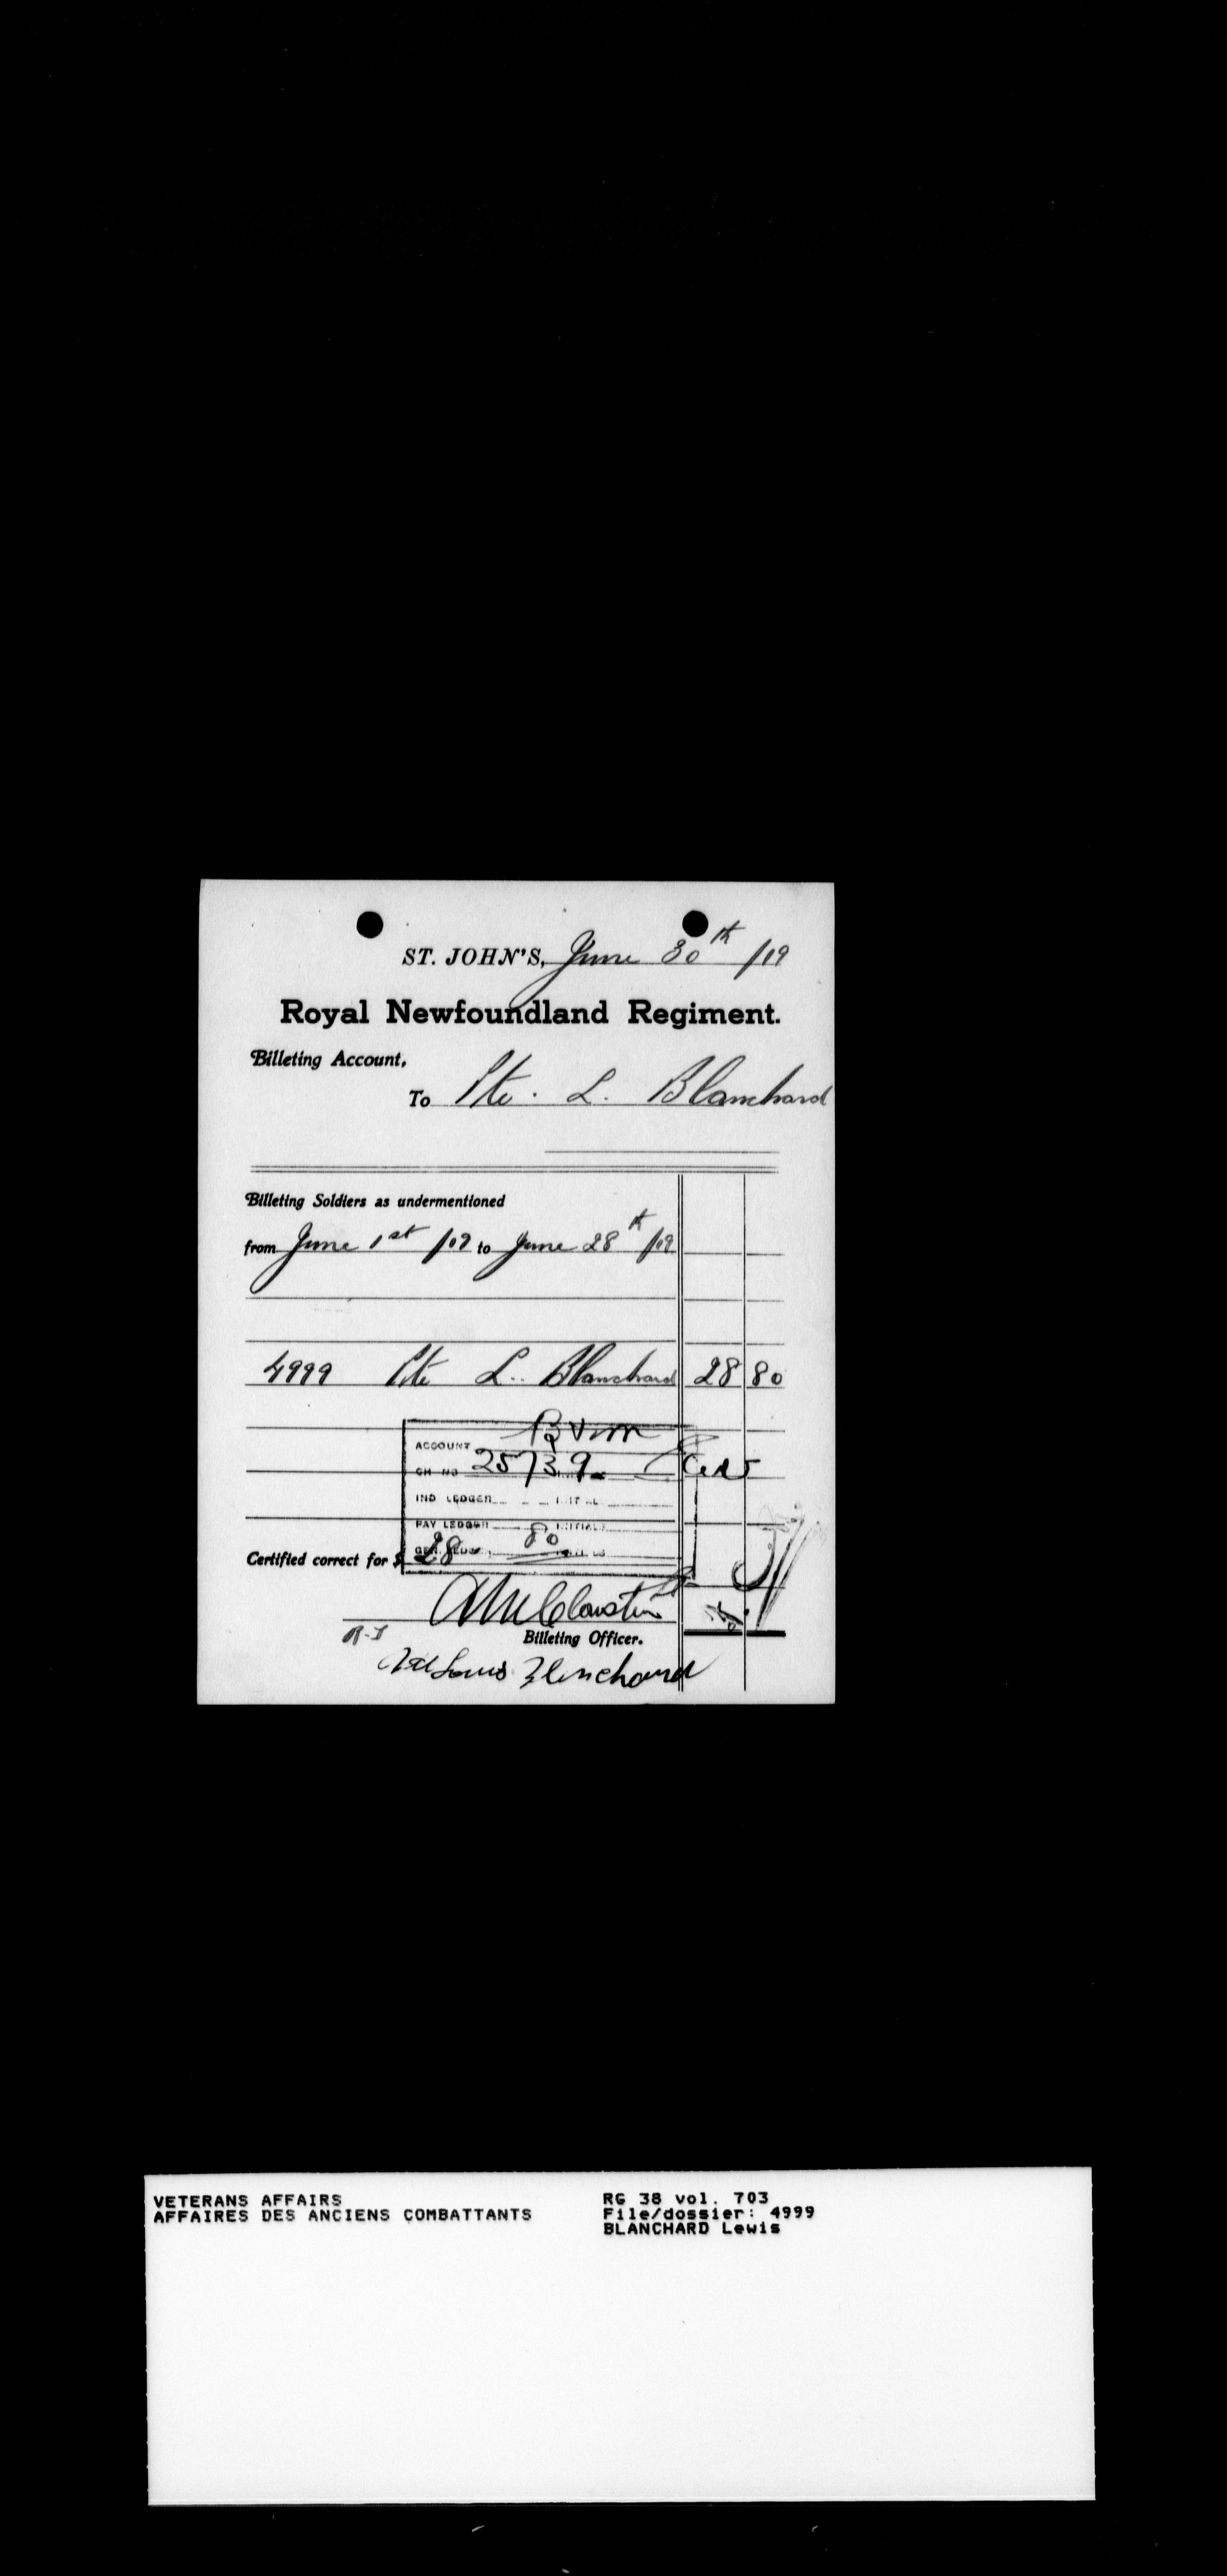 ST. JOHN'S, June 30th /19
Royal Newfoundland Regiment.
Billeting Account,
To Pte. L. Blanchard
Billeting Soldiers as undermentioned
from June 1st /19 to June 28th /19
4999 Pte L. Blanchard 28 80
ACCOUNT
CH NO 25739
IND LEDGER INITIAL
PAY LEDGER INITIALS
GEN. LEDGER INITIALS
Certified correct for $ 28 80
Billeting Officer.
Louis Blanchard
VETERANS AFFAIRS
AFFAIRES DES ANCIENS COMBATTANTS
RG 38 vol. 703
File/dossier: 4999
BLANCHARD Lewis